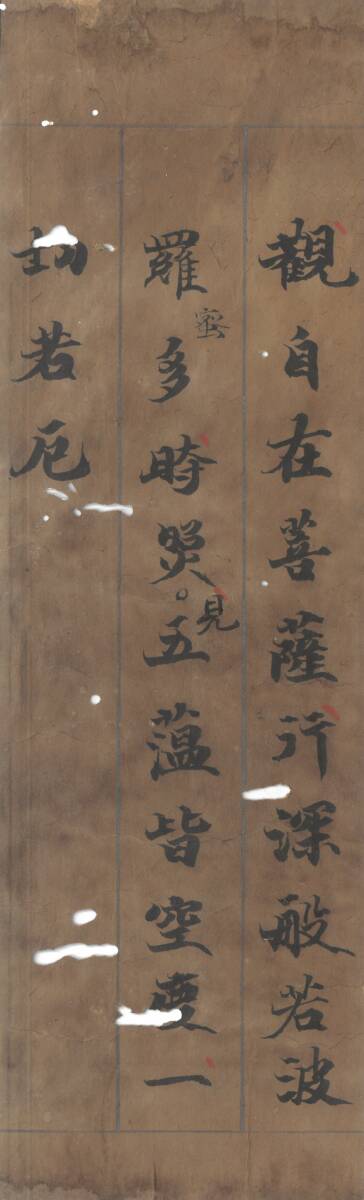 觀自在菩薩行深般若波
羅蜜多時照見五薀皆空度一
切若厄